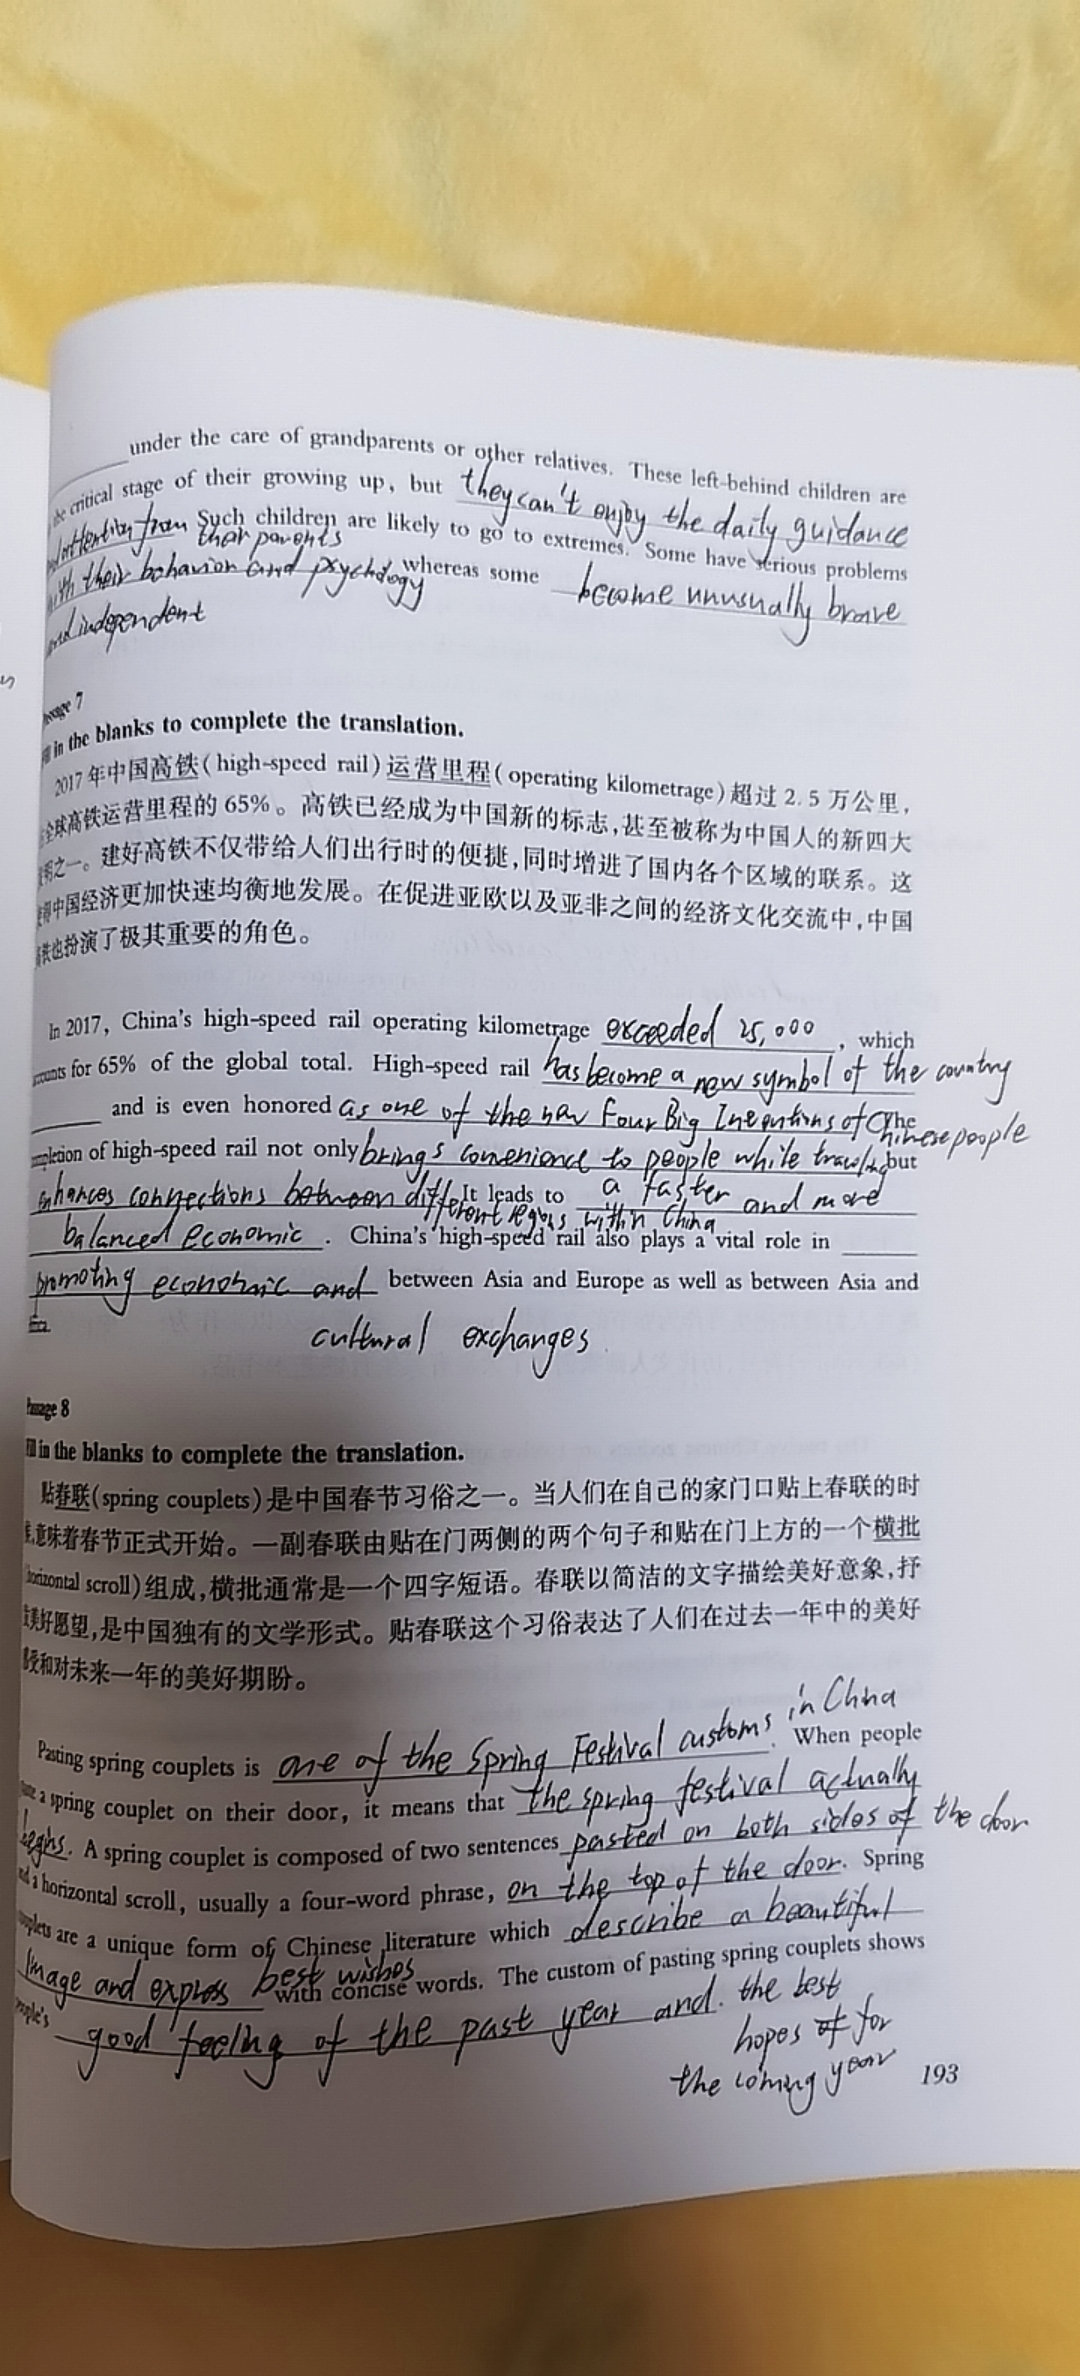 under the care of grandparents or other relatives. These left-behind children are
critical stage of their growing up, but they can't enjoy the daily guidance
attention from their parents Such children are likely to go to extremes. Some have serious problems
with their behavior and psychology whereas some become unusually brave
and independent
7
in the blanks to complete the translation.
2017年中国高铁(high-speed rail)运营里程(operating kilometrage)超过2.5万公里,
全球高铁运营里程的65%。高铁已经成为中国新的标志,甚至被称为中国人的新四大
明之一。建好高铁不仅带给人们出行时的便捷,同时增进了国内各个区域的联系。这
得中国经济更加快速均衡地发展。在促进亚欧以及亚非之间的经济文化交流中,中国
铁也扮演了极其重要的角色。
In 2017, China's high-speed rail operating kilometrage exceeded 25,000, which
for 65% of the global total. High-speed rail has become a new symbol of the country
and is even honored as one of the new Four Big Inventions of Chinese people
of high-speed rail not only brings convenience to people while traveling but
enhances connections between different regions within China It leads to a faster and more
balanced economic. China's high-speed rail also plays a vital role in
promoting economic and cultural exchanges between Asia and Europe as well as between Asia and
Passage 8
in the blanks to complete the translation.
贴春联(spring couplets)是中国春节习俗之一。当人们在自己的家门口贴上春联的时
,意味着春节正式开始。一副春联由贴在门两侧的两个句子和贴在门上方的一个横批
(horizontal scroll)组成,横批通常是一个四字短语。春联以简洁的文字描绘美好意象,抒
美好愿望,是中国独有的文学形式。贴春联这个习俗表达了人们在过去一年中的美好
受和对未来一年的美好期盼。
Pasting spring couplets is one of the Spring Festival customs in China. When people
a spring couplet on their door, it means that the spring festival actually
begins. A spring couplet is composed of two sentences pasted on both sides of the door
a horizontal scroll, usually a four-word phrase, on the top of the door. Spring
are a unique form of Chinese literature which describe a beautiful
image and express best wishes with concise words. The custom of pasting spring couplets shows
good feeling of the past year and the best
hopes for
the coming year
193